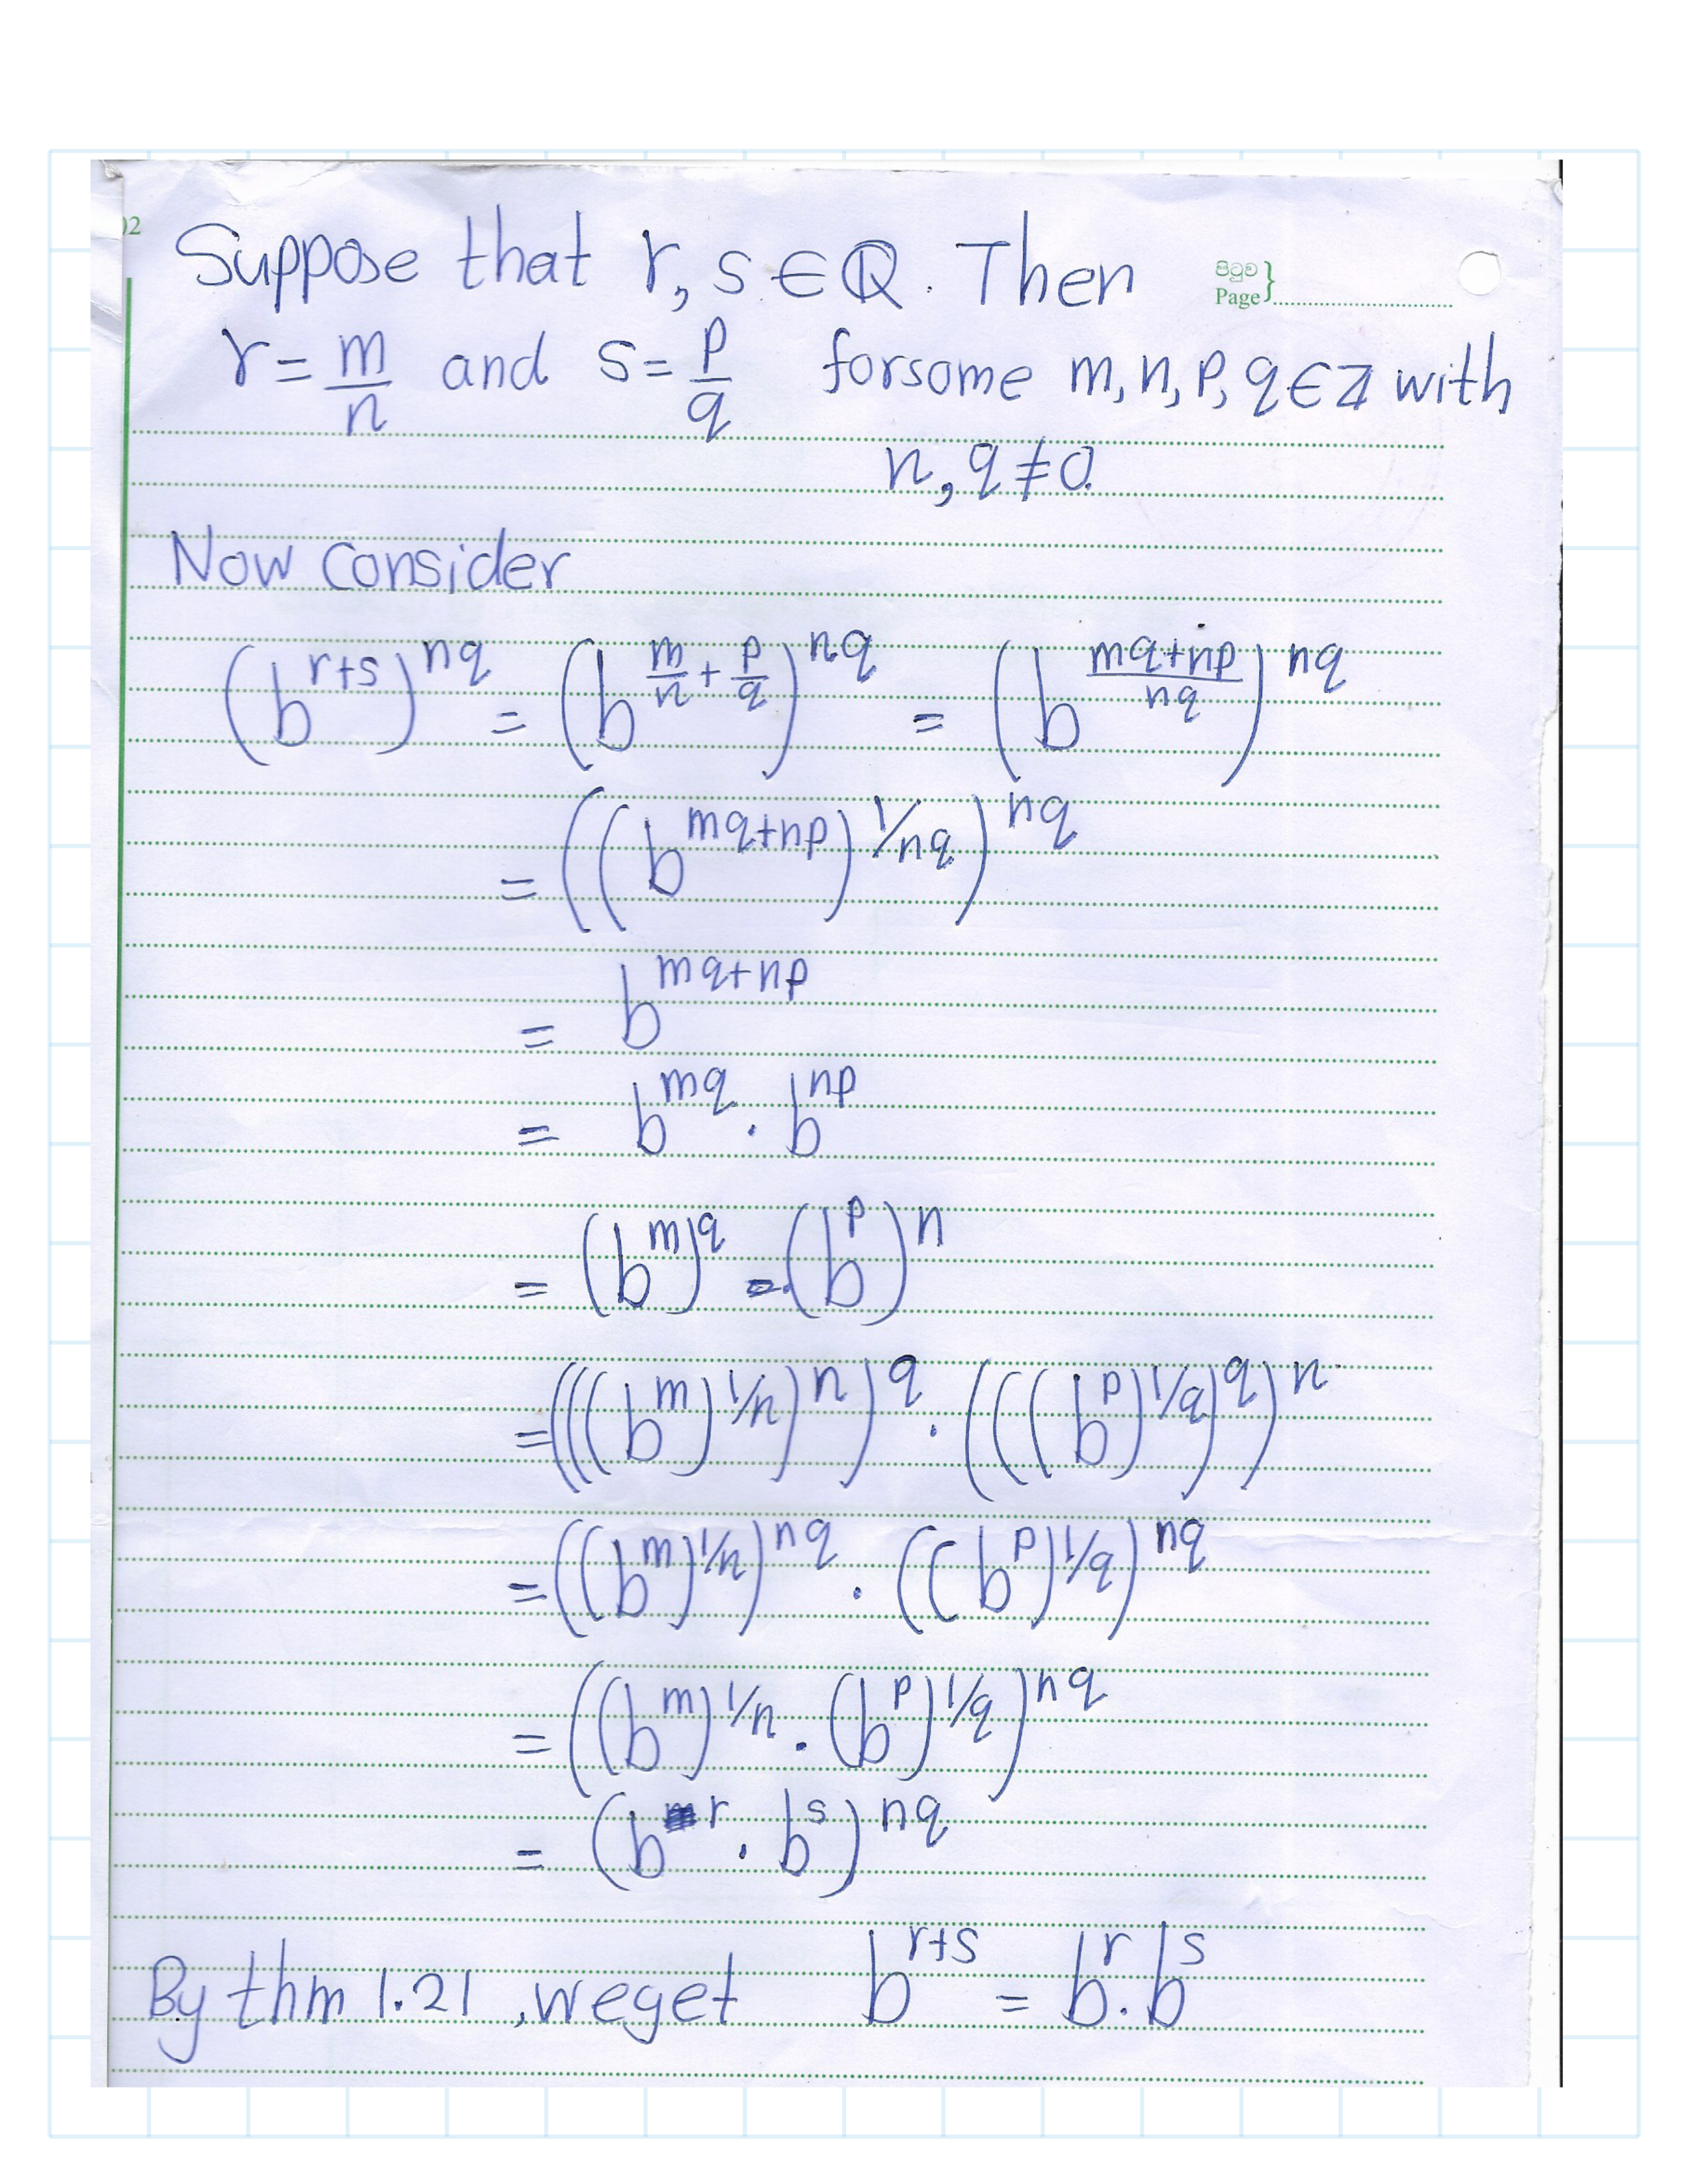 02
Suppose that r, s ∈ ℚ. Then
පිටුව
Page }
r = m/n and s = p/q forsome m, n, p, q ∈ ℤ with
n, q ≠ 0.
Now consider
(b^{r+s})^{nq} = (b^{m/n + p/q})^{nq} = (b^{(mq+np)/nq})^{nq}
= ((b^{mq+np})^{1/nq})^{nq}
= b^{mq+np}
= b^{mq} · b^{np}
= (b^m)^q · (b^p)^n
= (((b^m)^{1/n})^n)^q · (((b^p)^{1/q})^q)^n
= ((b^m)^{1/n})^{nq} · ((b^p)^{1/q})^{nq}
= ((b^m)^{1/n} · (b^p)^{1/q})^{nq}
= (b^r · b^s)^{nq}
By thm 1.21, weget b^{r+s} = b^r · b^s